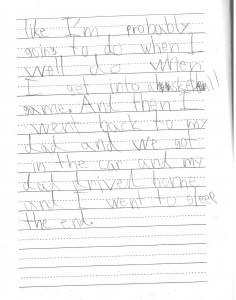 like I'm probably
going to do when I
well do when
I get into a basketball
game. And then I
went back to my
dad and we got
in the car and my
dad drived home
and I went to sleep
the end.